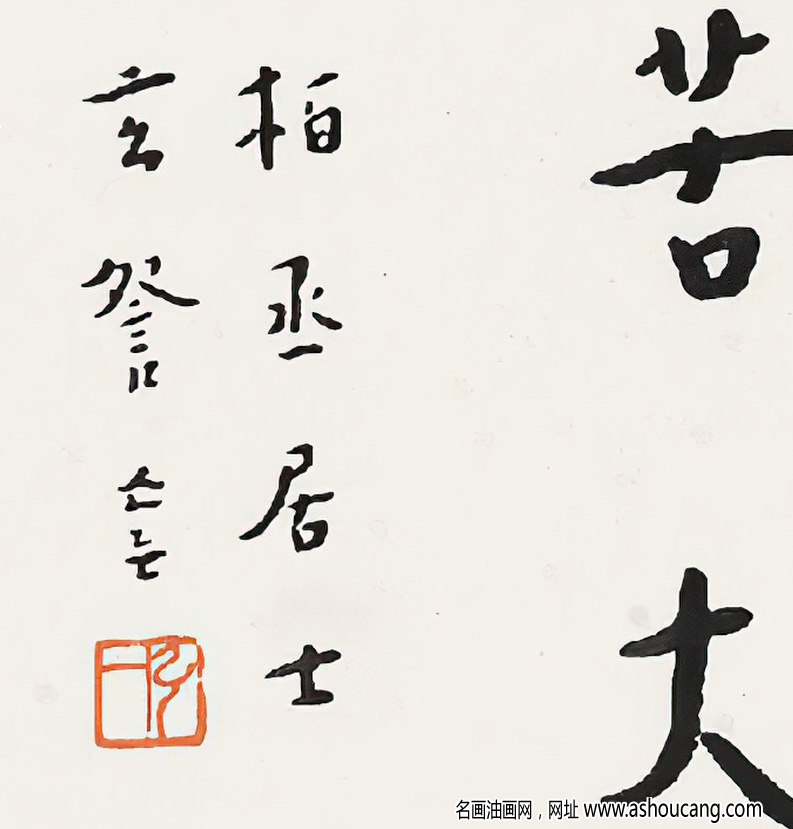 苦大
柏丞居士
玄詧
名画油画网，网址 www.ashoucang.com